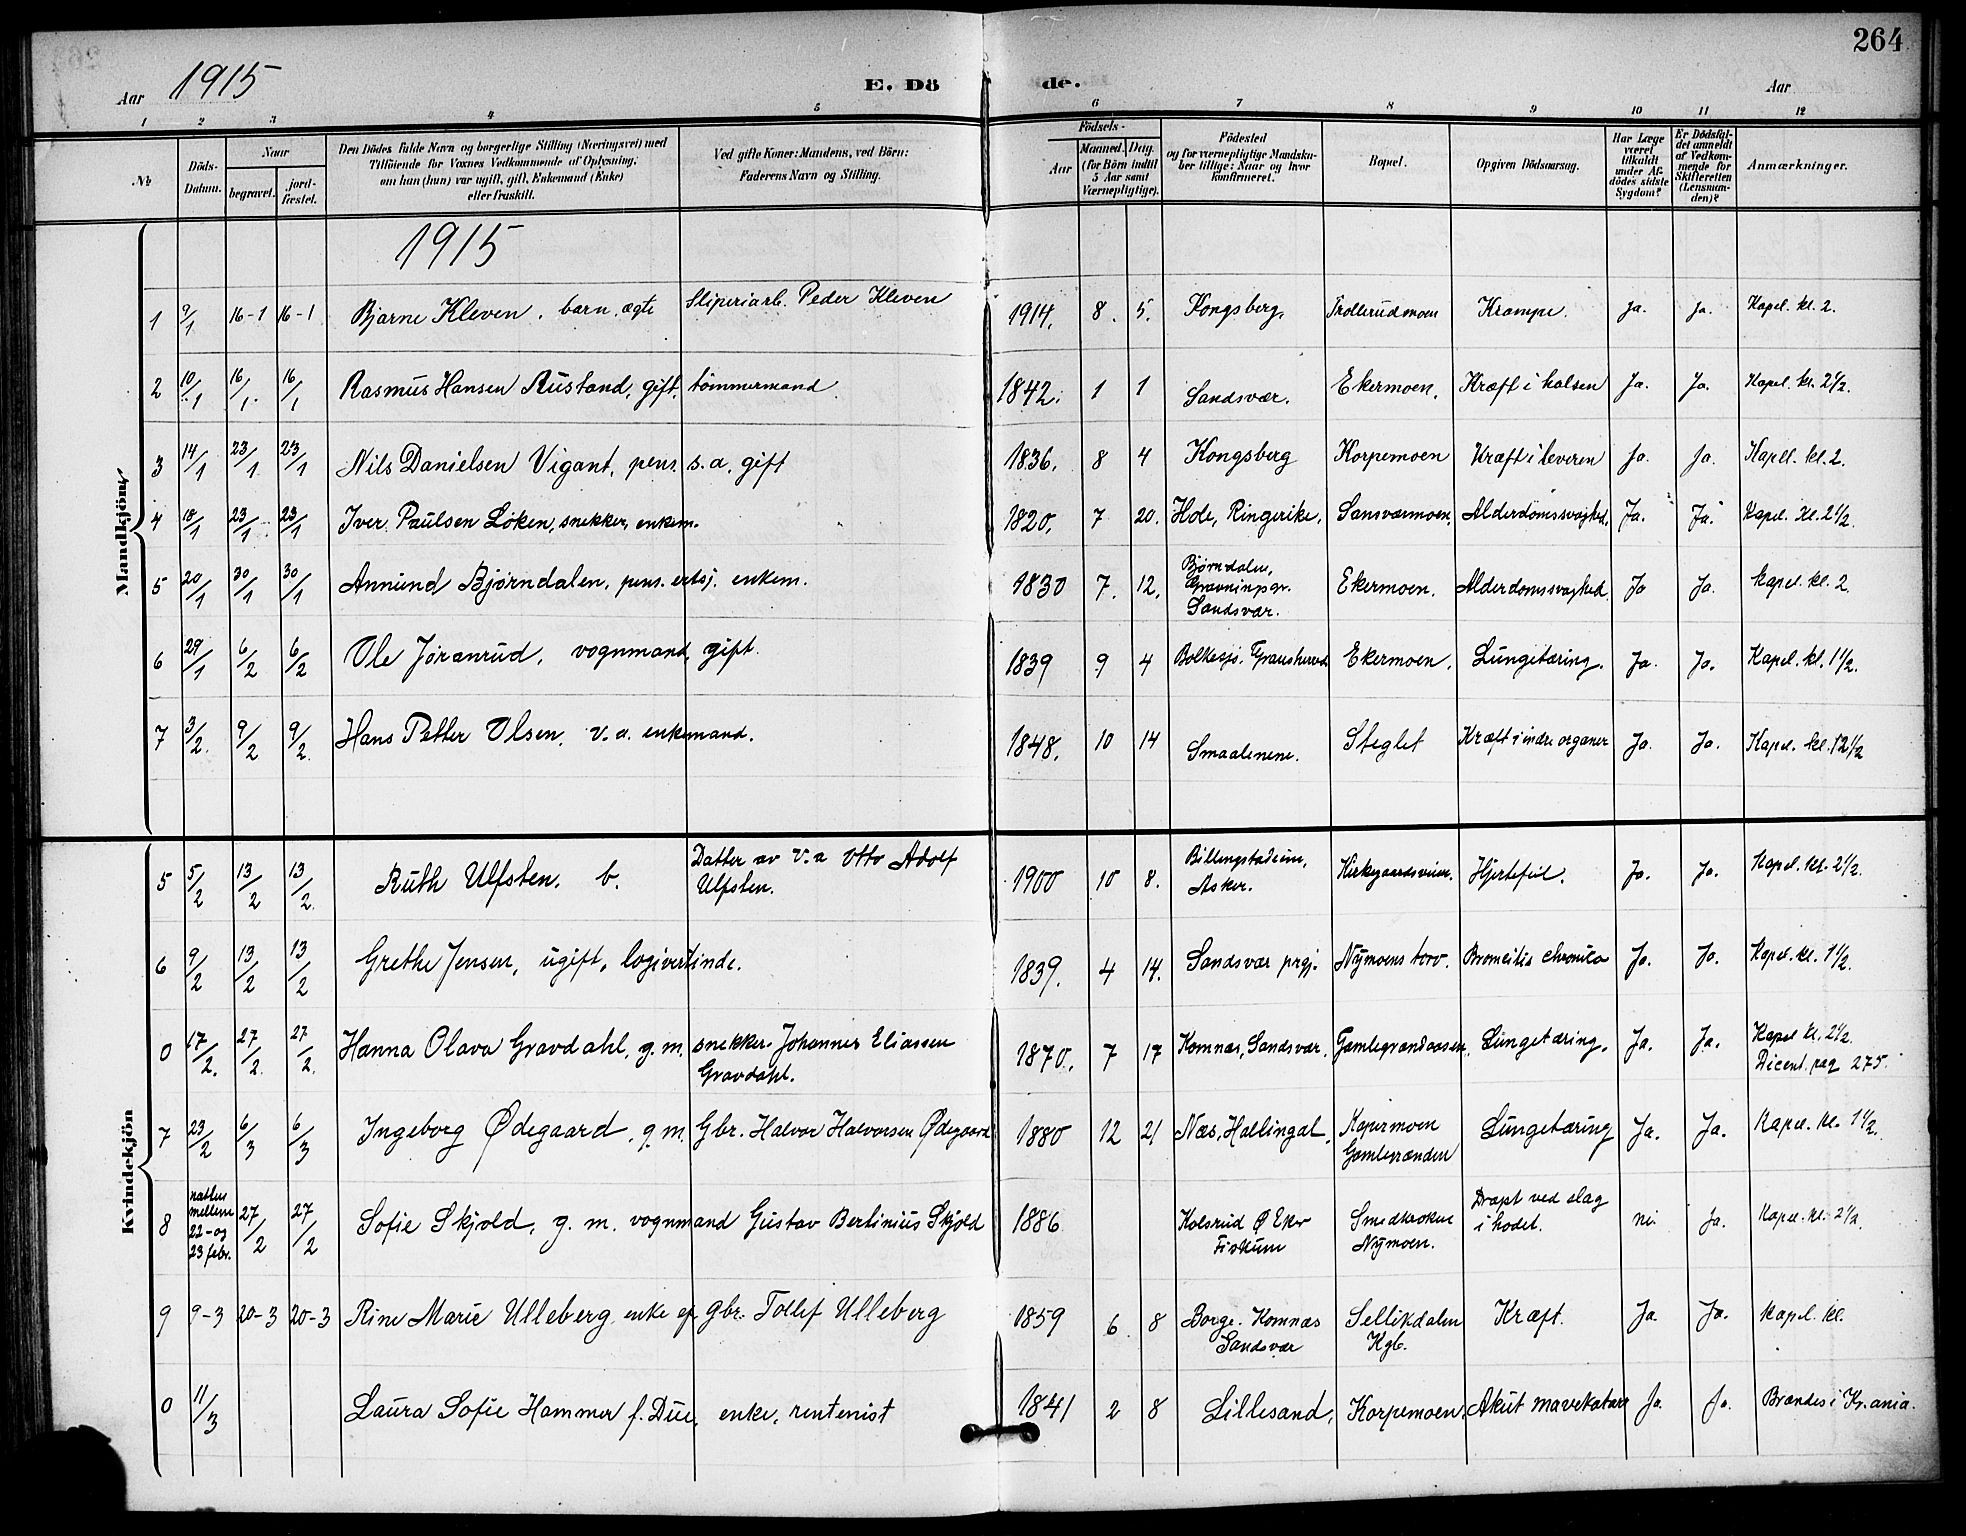 264
Aar 1915 E. Dö de. Aar
1 2 3 4 5 6 7 8 9 10 11 12
№ Döds-Datum. Naar begravet. jord-fæstet. Den Dödes fulde Navn og borgerlige Stilling (Næringsvei) med Tilföiende for Voxnes Vedkommende af Oplysning, om han (hun) var ugift, gift, Enkemand (Enke) eller fraskilt. Ved gifte Koner: Mandens, ved Börn: Faderens Navn og Stilling. Födsels- Aar Maaned. Dag. (for Börn indtil 5 Aar samt Værnepligtige). Födested og for værnepligtige Mandskaber tillige: Naar og hvor konfirmeret. Bopæl. Opgiven Dödsaarsag. Har Læge været tilkaldt under Afdödes sidste Sygdom? Er Dödsfaldet anmeldt af Vedkommende for Skifteretten (Lensmanden)? Anmærkninger.
1915
Mandkjön
1 9/1 16-1 16-1 Bjarne Kleven, barn, ægte Sliperiarb. Peder Kleven 1914. 8. 5. Kongsberg. Trollerudmoen Krampe. Ja. Ja. Kapel. kl. 2.
2 10/1 16/1 16/1 Rasmus Hansen Rustand, gift, tømmermand 1842. 1 1 Sandsvær. Ekermoen. Kræft i halsen Ja. Ja. Kapel. kl. 2 1/2.
3 14/1 23/1 23/1 Nils Danielsen Vigant, pens. s.a. gift 1836. 8 4 Kongsberg Korpemoen Kræft i leveren Ja. Ja. Kapel. kl. 2.
4 18/1 23/1 23/1 Iver Paulsen Løken, snekker, enkem. 1820. 7 20. Hole, Ringerike. Sansværmoen. Alderdomssvaghed. Ja. Ja. Kapel. Kl. 2 1/2.
5 20/1 30/1 30/1 Annund Bjørndalen, pens. enkem. 1830 7. 12. Bjørndalen, Sandsvær. Ekermoen. Alderdomssvaghed. Ja Ja. Kapel. kl. 2
6 29/1 6/2 6/2 Ole Jøranrud, vognmand, gift. 1839 9 4 Bolkesjø, Gransherred Ekermoen. Lungetæring. Ja. Ja. Kapel. kl. 1 1/2.
7 3/2. 9/2 9/2. Hans Petter Olsen, v.a. enkemand. 1848. 10 14 Smaalenene. Steglet Kræft i indre organer Ja. Ja. Kapel. kl. 12 1/2
Kvindekjön
5 5/2 13/2 13/2. Ruth Ulfsten. b. Datter av v.a Otto Adolf Ulfsten. 1900 10 8. Billingstadium, Asker. Kirkegaardsveien. Hjertefeil. Ja. Ja. Kapel. kl. 2 1/2.
6 9/2 13/2 13/2 Grethe Jensen, ugift, logivertinde. 1839. 4 14. Sandsvær prgj. Nymoens torv. chronica Ja. Ja. Kapel. kl. 1 1/2.
0 17/2. 27/2. 27/2. Hanna Olava Gravdahl, g.m. snekker Johannes Eliassen Gravdahl. 1870. 7 17 Komnæs, Sandsvær. Gamlegrandaasen. Lungetæring. Ja. Ja. Kapel kl. 2 1/2. Dicent. pag 275.
7 23/2 6/3 6/3 Ingeborg Ødegaard, g.m. Gbr. Halvor Halvorsen Ødegaard 1880 12 21 Næs, Hallingdal. Kopermoen Gamlegrænden Lungetæring Ja. Ja. Kapel. kl. 1 1/2.
8 natten mellem 22- og 23 febr. 27/2 27/2 Sofie Skjold, g. m. vognmand Gustav Bertinius Skjold 1886 Kolsrud Ø Eker Fiskum Smedbakken Nymoen. Dræpt ved slag i hodet. nei Ja. Kapel. kl. 2 1/2.
9 9-3 20-3 20-3 Rine Marie Ulleberg enke ef. gbr. Tollef Ulleberg 1859 6. 8 Borge. Komnæs Sandsvær Sellikdalen Kgb. Kræft. Ja. Ja. Kapel. kl.
0 11/3 Laura Sofie Hammer f. Due, enke, rentenist 1841 2 8 Lillesand, Korpemoen, Akut mavekatarr Ja. Ja. Brændes i Kr.ania.